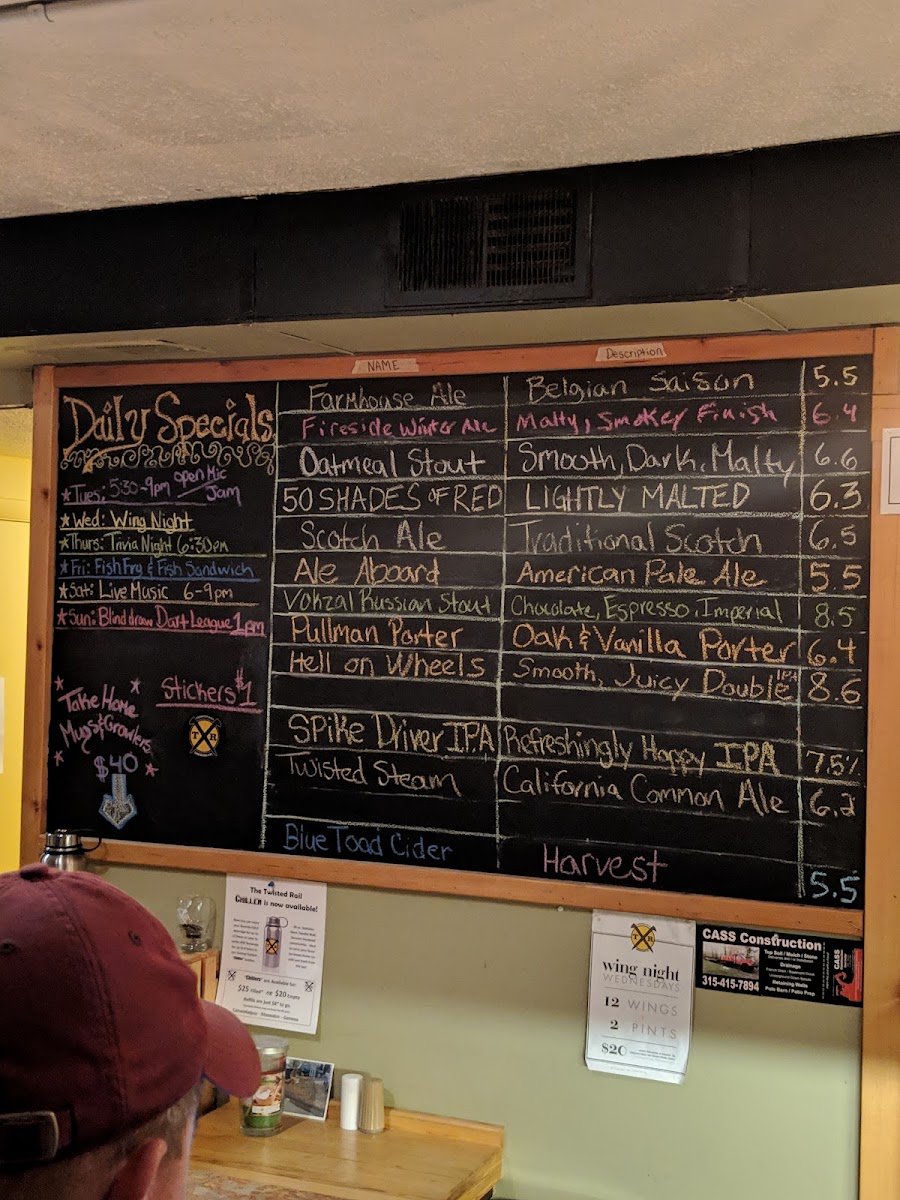 NAME
Description
Daily Specials
★Tues, 5:30-9pm open Mic Jam
★Wed: Wing Night
★Thurs: Trivia Night 6:30pm
★Fri: Fish Fry & Fish Sandwich
★Sat: Live Music 6-9pm
★Sun: Blind draw Dart League 1pm
Take Home
Mugs & Growlers
$40
Stickers $1
T R
Farmhouse Ale Belgian Saison 5.5
Fireside Winter Ale Malty, Smokey Finish 6.4
Oatmeal Stout Smooth, Dark, Malty 6.6
50 SHADES OF RED LIGHTLY MALTED 6.3
Scotch Ale Traditional Scotch 6.5
Ale Aboard American Pale Ale 5.5
Vokzal Russian Stout Chocolate, Espresso, Imperial 8.5
Pullman Porter Oak & Vanilla Porter 6.4
Hell on Wheels Smooth, Juicy Double IPA 8.6
Spike Driver IPA Refreshingly Hoppy IPA 7.5%
Twisted Steam California Common Ale 6.2
Blue Toad Cider Harvest 5.5
The Twisted Rail
CHILLER is now available!
"Chillers" are Available for:
$25 Filled $20 Empty
T R
wing night
WEDNESDAYS
12 WINGS
2 PINTS
$20
CASS Construction
Top Soil / Mulch / Stone
Drainage
Retaining Walls
Pole Barn / Patio Prep
315-415-7894
CASS